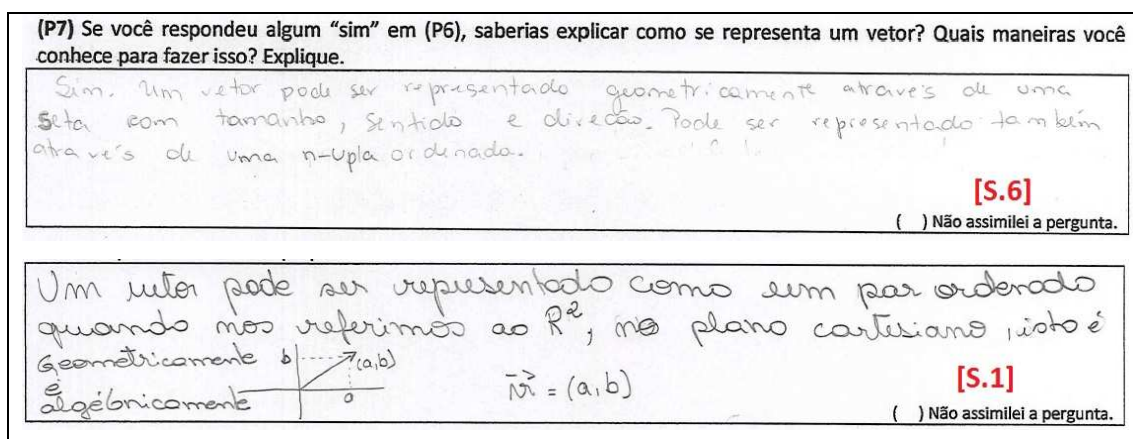 (P7) Se você respondeu algum “sim” em (P6), saberias explicar como se representa um vetor? Quais maneiras você
conhece para fazer isso? Explique.
Sim. Um vetor pode ser representado geometricamente através de uma
seta com tamanho, sentido e direção. Pode ser representado também
através de uma n-upla ordenada.
[S.6]
( ) Não assimilei a pergunta.
Um vetor pode ser representado como um par ordenado
quando nos referimos ao R², no plano cartesiano, isto é
Geometricamente b (a,b)
e a v⃗ = (a,b)
algébricamente
[S.1]
( ) Não assimilei a pergunta.